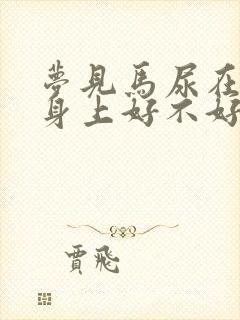 夢見馬尿在
身上好不好
賈飛